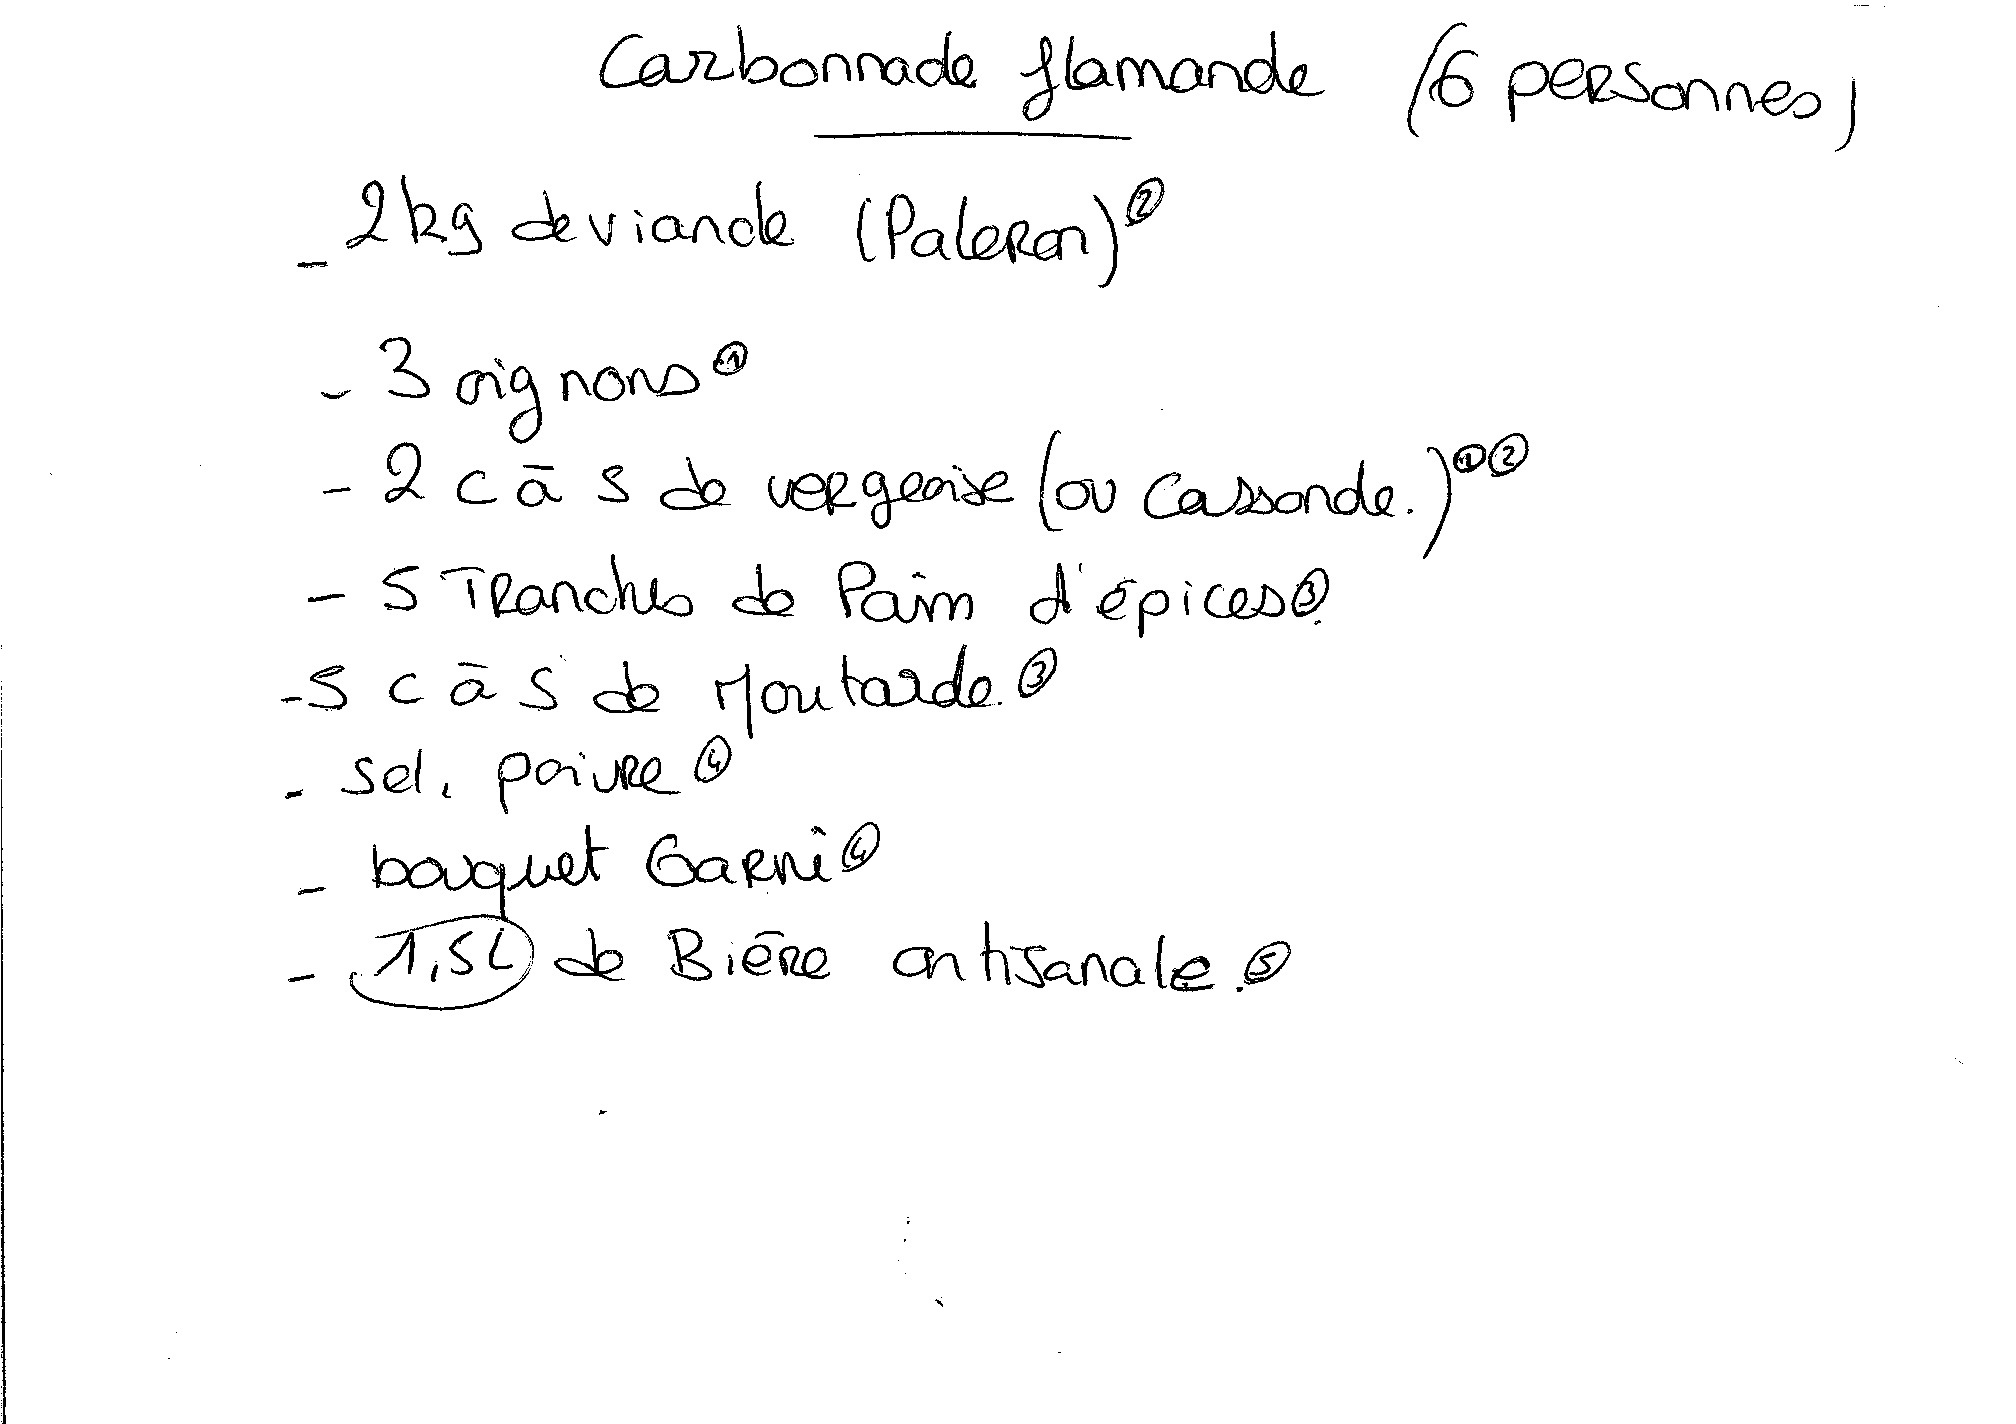 Carbonnade flamande (6 personnes)
- 2kg de viande (Paleron) ②
- 3 oignons ①
- 2 c à s de vergeoise (ou Cassonde.) ① ②
- 5 Tranches de Pain d'épices ③.
- 5 c à s de Moutarde. ③
- sel, poivre ④
- bouquet Garni ④
- 1,5L de Bière artisanale. ⑤